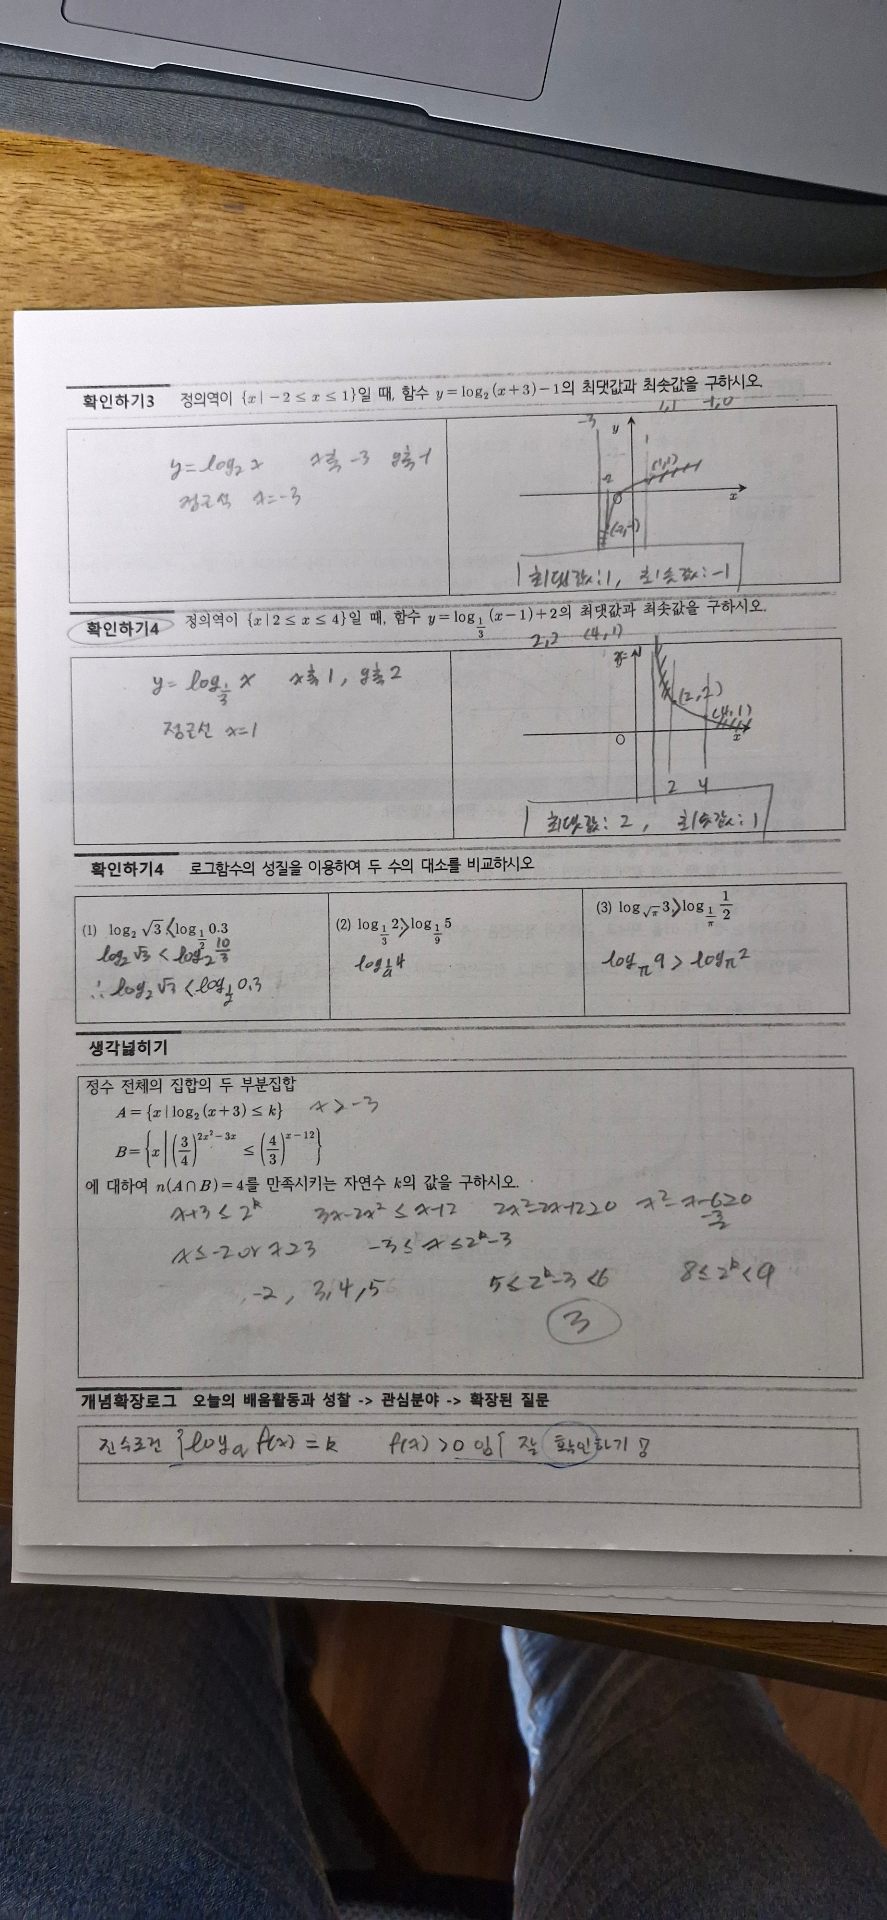 확인하기3 정의역이 {x|-2≤x≤1}일 때, 함수 y=log₂(x+3)-1의 최댓값과 최솟값을 구하시오.
1,1 -1,0
y=log₂x x축 -3 y축 -1
점근선 x=-3
-3 y 1
-2 (1,1)
O x
(-2,-1)
최댓값:1, 최솟값:-1
확인하기4 정의역이 {x|2≤x≤4}일 때, 함수 y=log_{1/3}(x-1)+2의 최댓값과 최솟값을 구하시오.
2,2 (4,1)
y=log_{1/3}x x축 1, y축 2
점근선 x=1
(2,2)
(4,1)
O x
2 4
최댓값: 2, 최솟값: 1
확인하기4 로그함수의 성질을 이용하여 두 수의 대소를 비교하시오
(1) log₂√3<log_{1/2}0.3
log₂√3 < log₂10/3
∴ log₂√3 < log_{1/2}0.3
(2) log_{1/3}2>log_{1/9}5
log_{1/9}4
(3) log_{√π}3>log_{1/π}1/2
log_π9 > log_π2
생각넓히기
정수 전체의 집합의 두 부분집합
A={x|log₂(x+3)≤k} x>-3
B={x|(3/4)^{2x²-3x}≤(4/3)^{x-12}}
에 대하여 n(A∩B)=4를 만족시키는 자연수 k의 값을 구하시오.
x+3≤2^k 3x-2x²≤x-12 2x²-2x-12≥0 x²-x-6≥0
-3
x≤-2 or x≥3 -3≤x≤2^k-3
-2, 3,4,5 5≤2^k-3<6 8≤2^k<9
3
개념확장로그 오늘의 배움활동과 성찰 -> 관심분야 -> 확장된 질문
진수조건 log_a f(x)=k f(x)>0 임 잘 확인하기